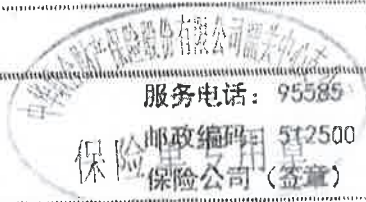 中华联合财产保险股份有限公司韶关中心支
服务电话：95585
邮政编码：512500
保险单专用章
保险公司（签章）